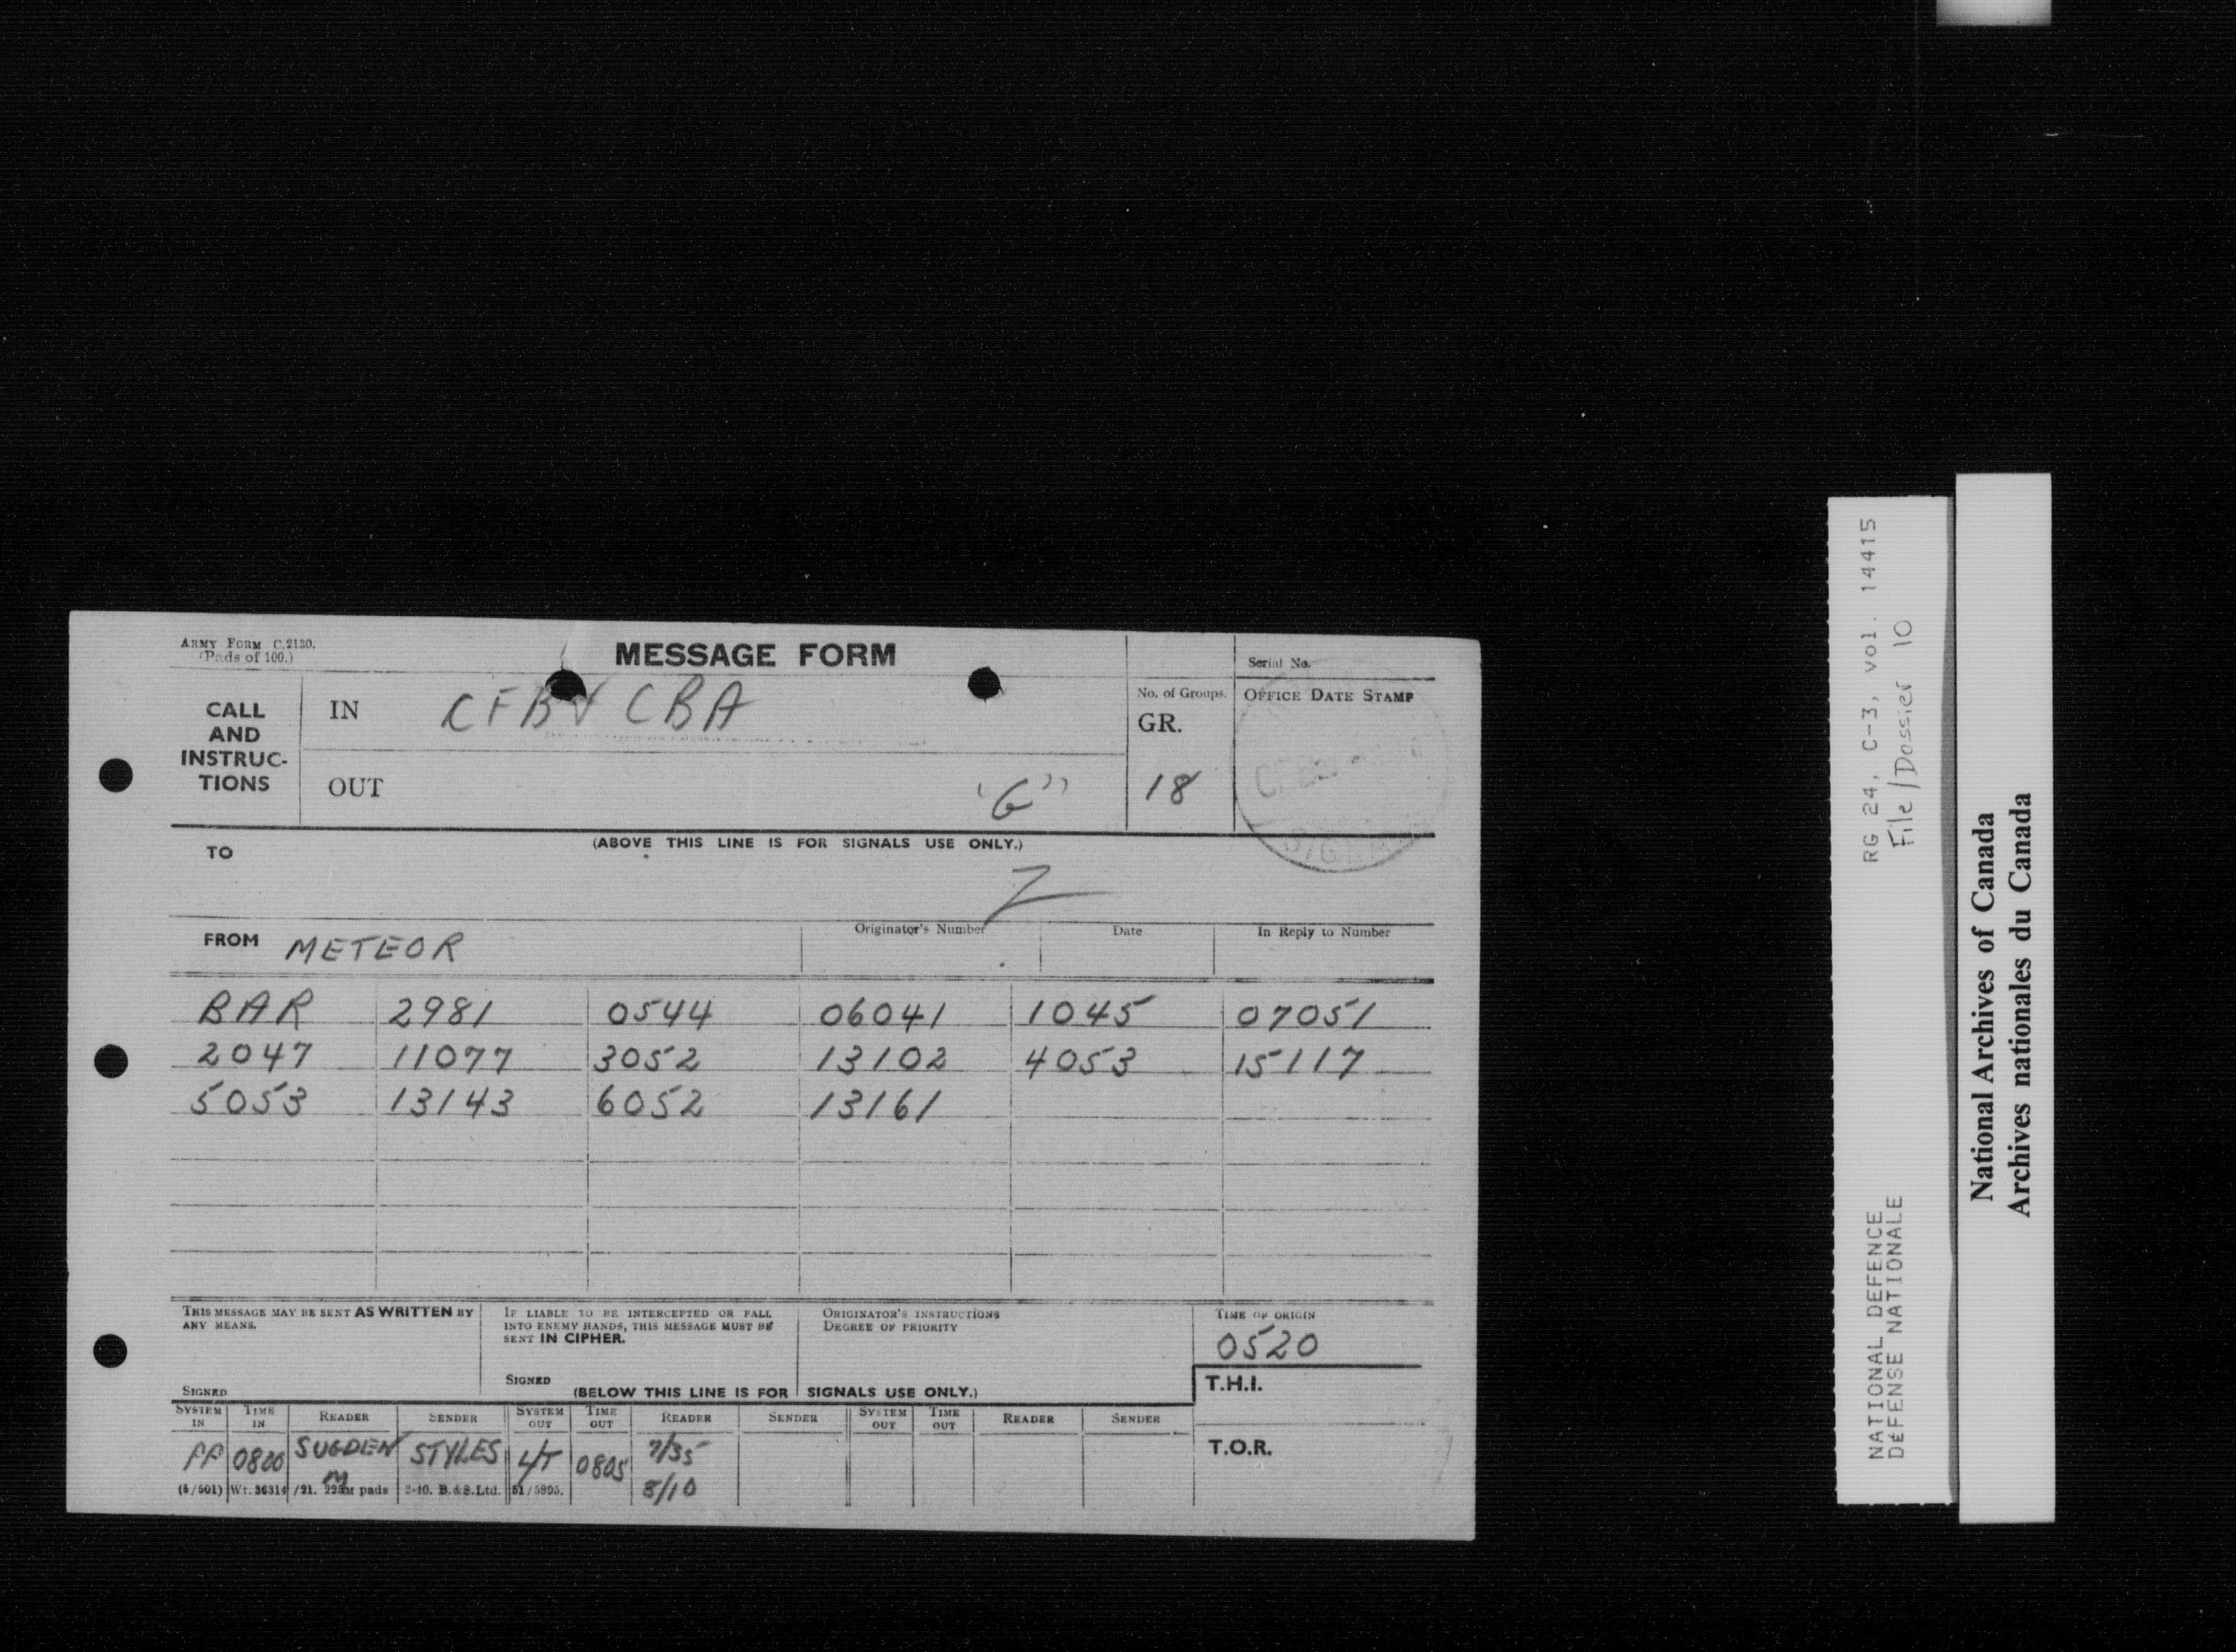 ARMY FORM C.2130.
(Pads of 100.)
MESSAGE FORM
Serial No.
CALL AND INSTRUC- TIONS
IN CFB V CBA
No. of Groups.
GR.
18
OFFICE DATE STAMP
OUT "G"
(ABOVE THIS LINE IS FOR SIGNALS USE ONLY.)
TO
Z
FROM METEOR
Originator's Number
Date
In Reply to Number
BAR 2981 0544 06041 1045 07051
2047 11077 3052 13102 4053 15117
5053 13143 6052 13161
THIS MESSAGE MAY BE SENT AS WRITTEN BY
ANY MEANS.
SIGNED
IF LIABLE TO BE INTERCEPTED OR FALL
INTO ENEMY HANDS, THIS MESSAGE MUST BE
SENT IN CIPHER.
SIGNED
ORIGINATOR'S INSTRUCTIONS
DEGREE OF PRIORITY
TIME OF ORIGIN
0520
(BELOW THIS LINE IS FOR SIGNALS USE ONLY.)
T.H.I.
SYSTEM IN TIME IN READER SENDER SYSTEM OUT TIME OUT READER SENDER SYSTEM OUT TIME OUT READER SENDER
0800 SUGDEN STYLES L/T 0805 7/35
8/10
T.O.R.
(5/501) Wt. 36314/21. pads 3-40. B.&S.Ltd. 51/5895.
RG 24, C-3, vol. 14415
File/Dossier 10
NATIONAL DEFENCE
DÉFENSE NATIONALE
National Archives of Canada
Archives nationales du Canada